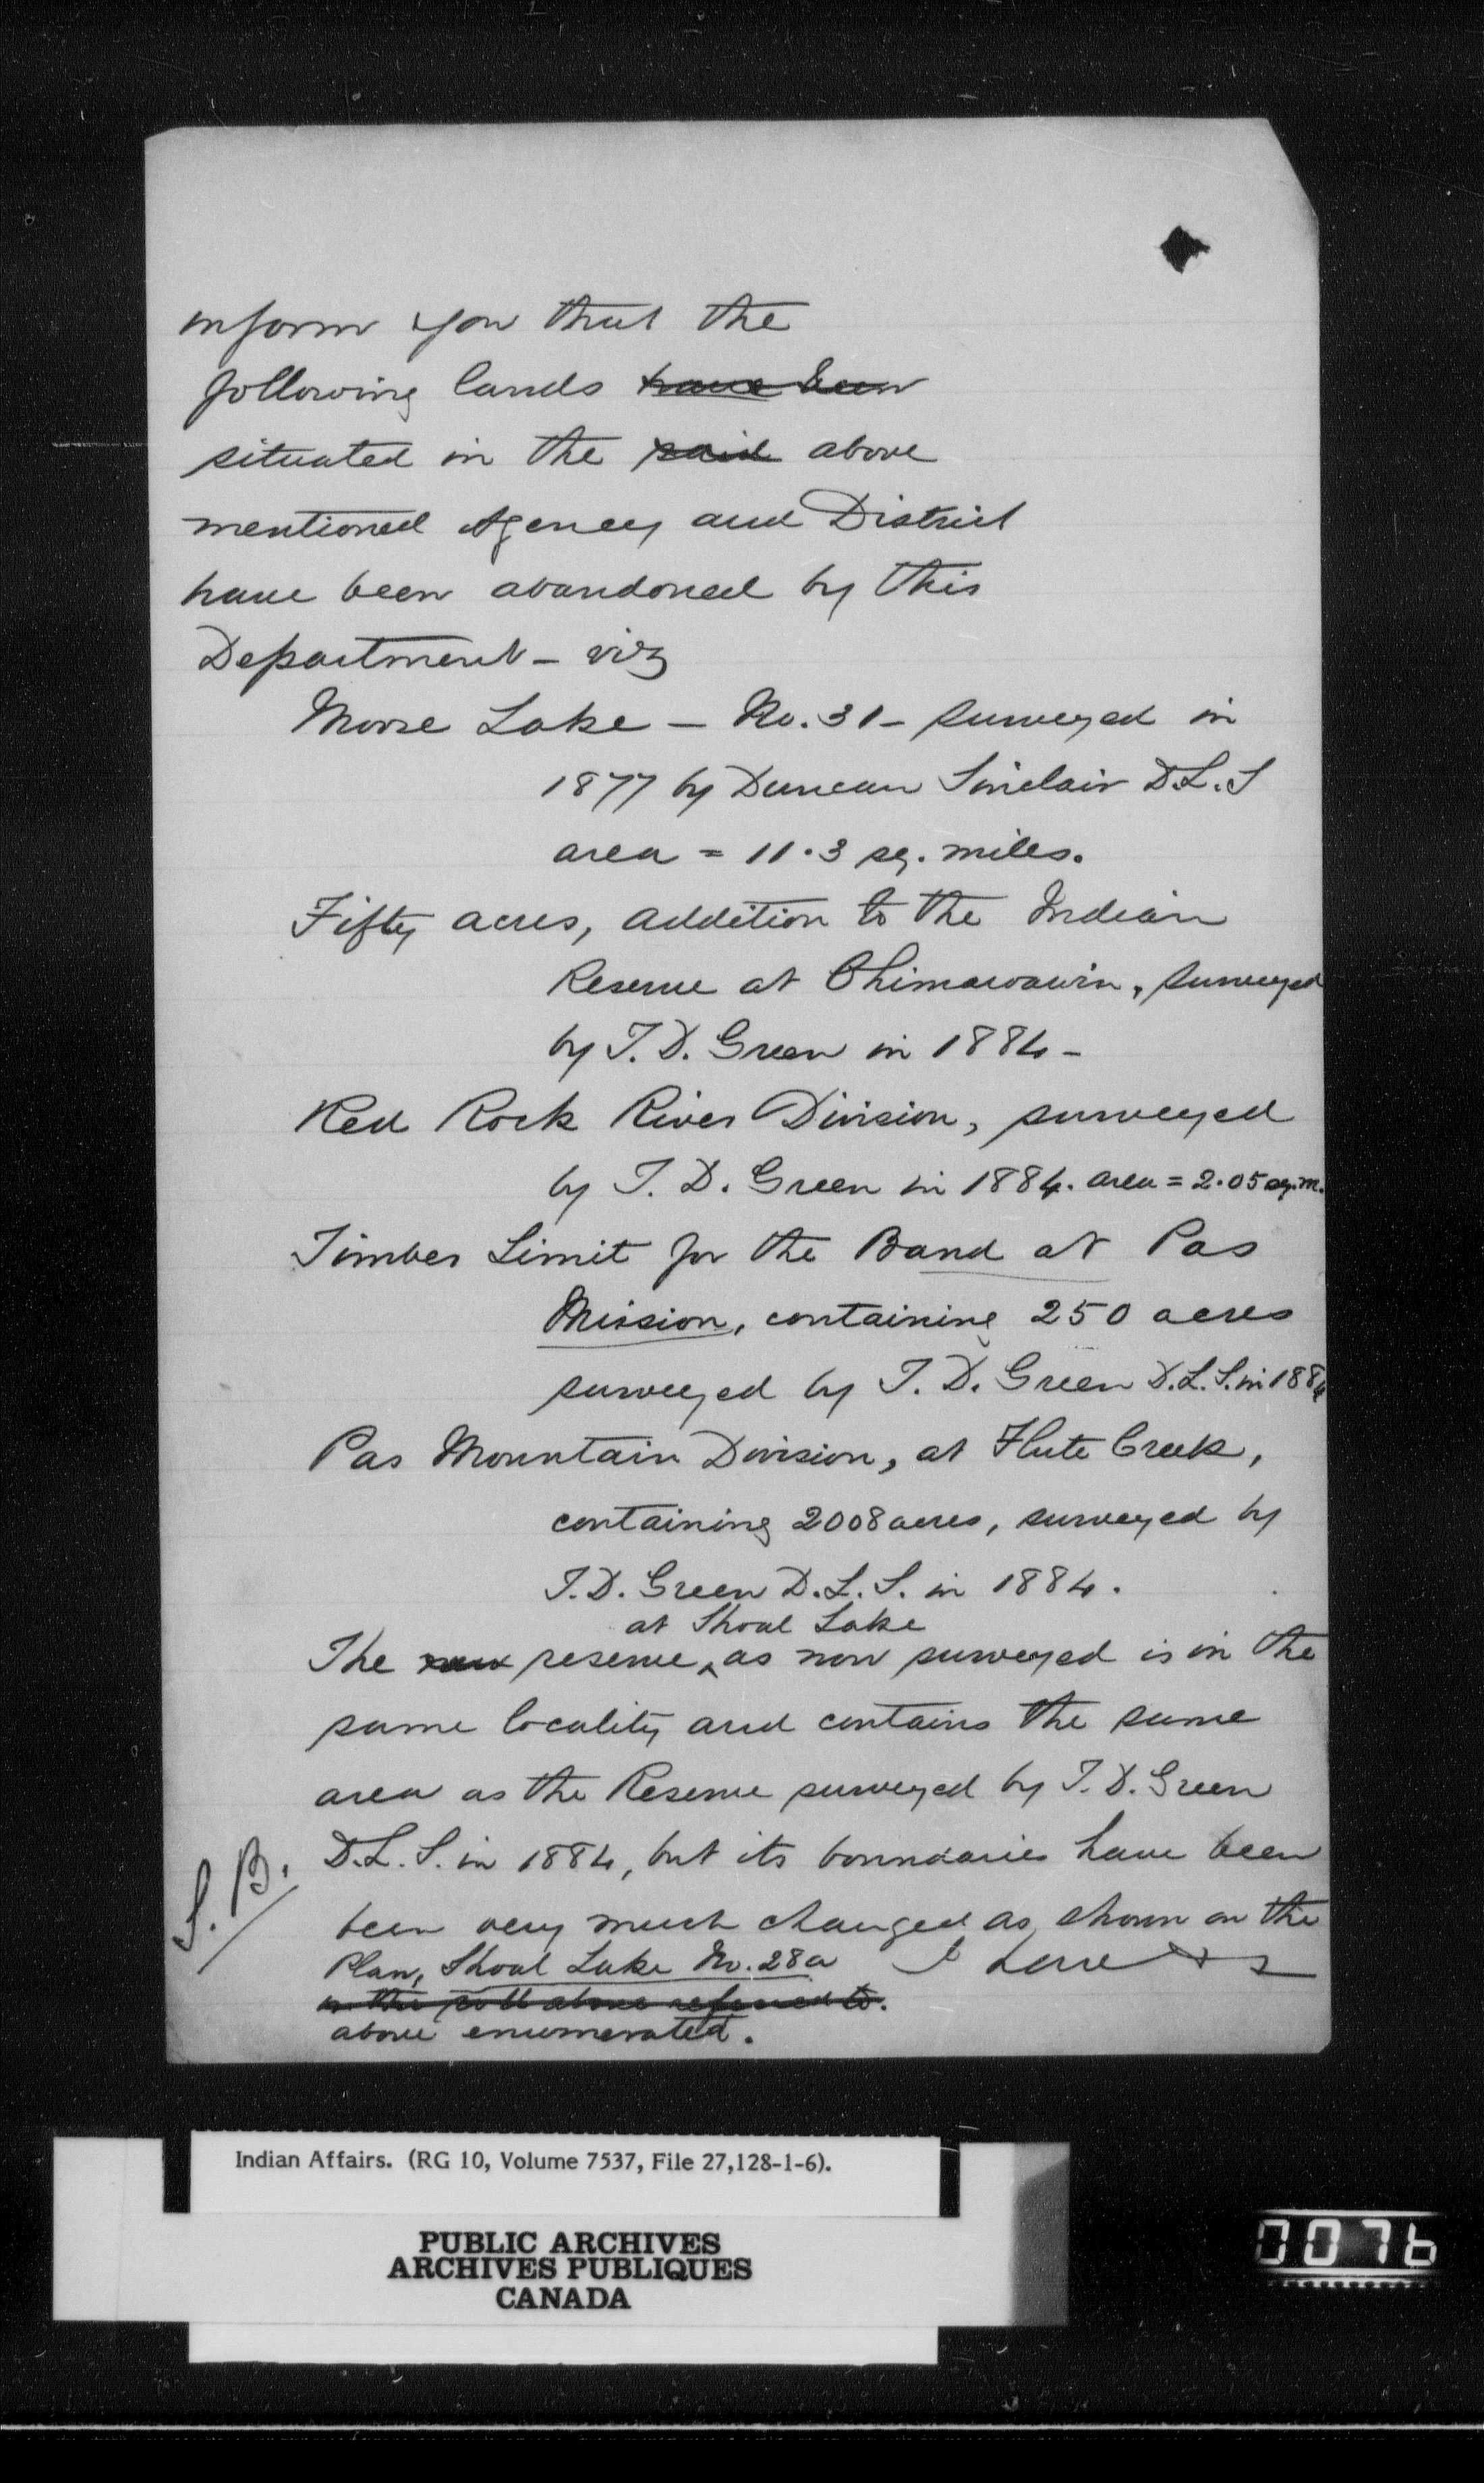 inform you that the
following lands have been
situated in the said above
mentioned Agency and District
have been abandoned by this
Department - viz
Moose Lake - No. 31 - surveyed in
1877 by Duncan Sinclair D.L.S
area = 11.3 sq. miles.
Fifty acres, addition to the Indian
Reserve at Chimawawin, surveyed
by T.D. Green in 1884 -
Red Rock River Division, surveyed
by T.D. Green in 1884. area = 2.05 sq.m.
Timber Limit for the Band at Pas
Mission, containing 250 acres
surveyed by T.D. Green D.L.S. in 1884
Pas Mountain Division, at Flute Creek,
containing 2008 acres, surveyed by
T.D. Green D.L.S. in 1884.
at Shoal Lake
The new reserve, as now surveyed is in the
same locality and contains the same
area as the Reserve surveyed by T.D. Green
D.L.S. in 1884, but its boundaries have been
been very much changed as shown on the
Plan, Shoal Lake No. 28a I have
in the above referred to.
above enumerated.
S.B.
Indian Affairs. (RG 10, Volume 7537, File 27,128-1-6).
PUBLIC ARCHIVES
ARCHIVES PUBLIQUES
CANADA
0076